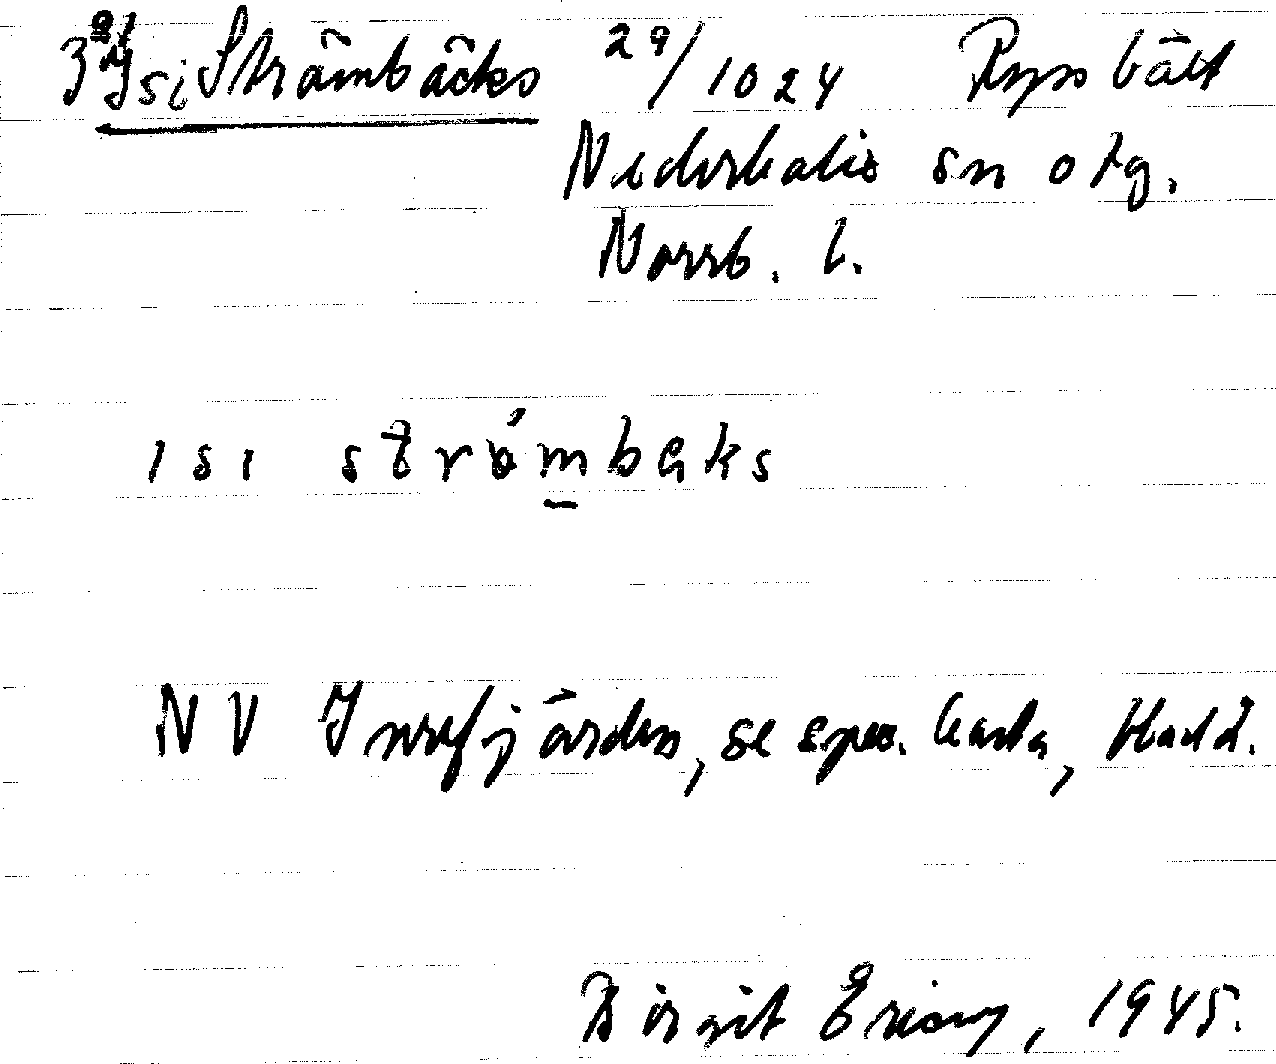 Isi Strömbäcks 29/1024 Rysbält
Nederkalix sn o tg.
Norrb. l.
isi strömbäks
NV Inrefjärden, se spec. karta,
Birgit Ericson, 1945.